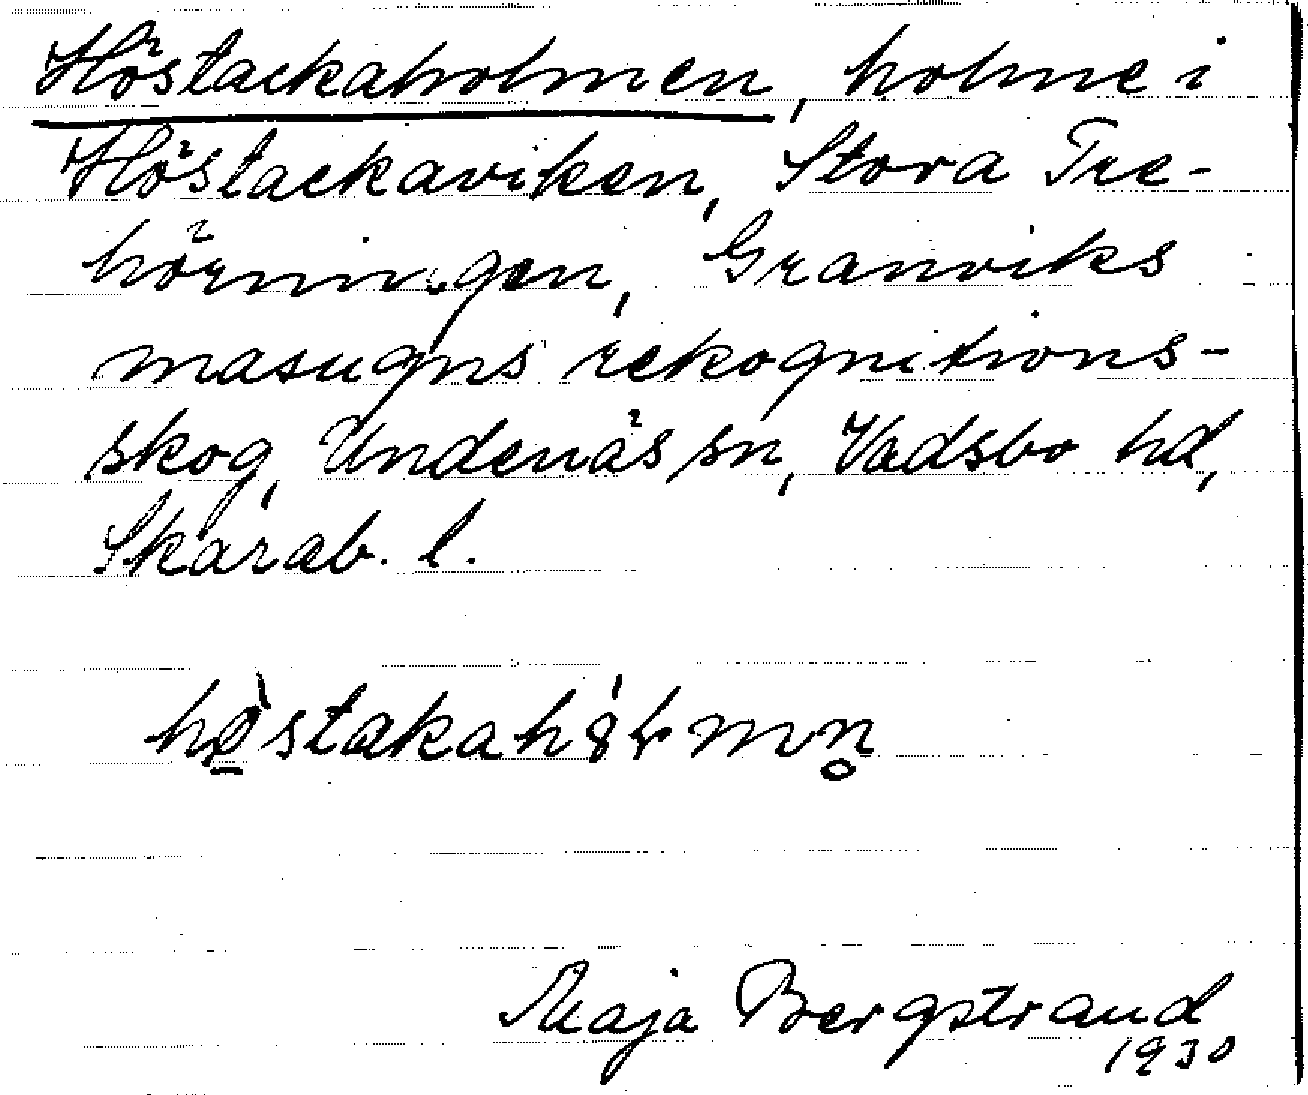 Höstackaholmen, holme i
Höstackaviken, Stora Tre-
hörningen, Granviks
masugns rekognitions-
skog, Undenäs sn, Vadsbo hd,
Skarab. l.
Maja Bergstrand
1930